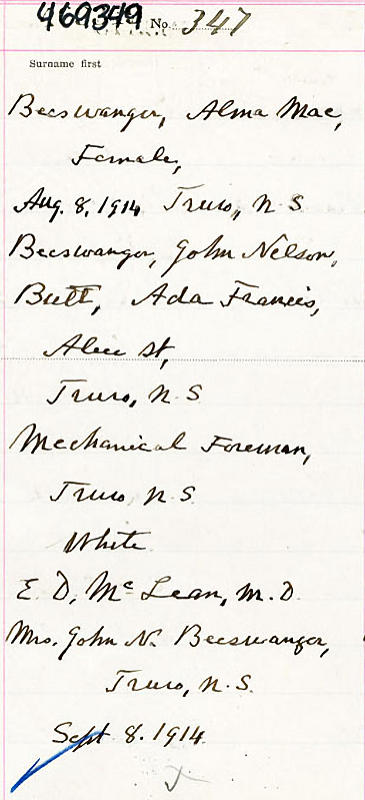 469349 No. 347
Surname first
Beeswanger, Alma Mae,
Female,
Aug. 8, 1914 Truro, N. S.
Beeswanger, John Nelson,
Butt, Ada Francis,
Alice St,
Truro, N. S
Mechanical Foreman,
Truro, N. S.
White
E. D. Mc Lean, M. D.
Mrs. John N. Beeswanger,
Truro, N. S.
Sept 8. 1914